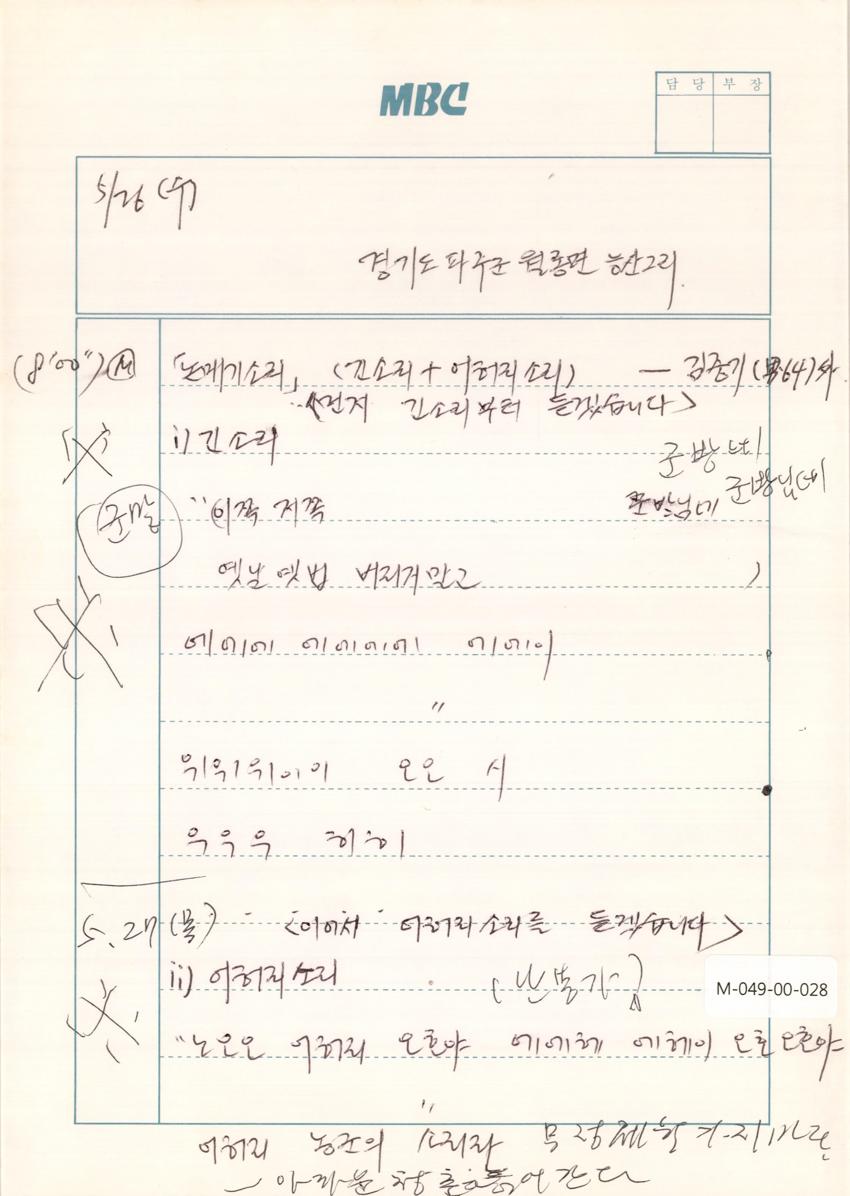 MBC
담 당 부 장
5/26 (수)
경기도 파주군 월롱면 능산2리.
(8'00") M 「논매기소리」 (긴소리 + 어허리소리) — 김중기 (男64)와
〈먼저 긴소리부터 듣겠습니다〉
i) 긴소리
군방네
군말 "(이쪽 저쪽 군방님네 군방님네
옛날 옛법 버리지말고 )
에에에 에에에에에 에에이
"
위위위이이 오오 시
우우우 허허이
5. 27 (목) 〈이어서 어허리소리를 듣겠습니다〉
ii) 어허리소리
M-049-00-028
"노오오 어허리 오호야 에에헤 에헤이 오호오호야
"
어허리 농군의 소리라